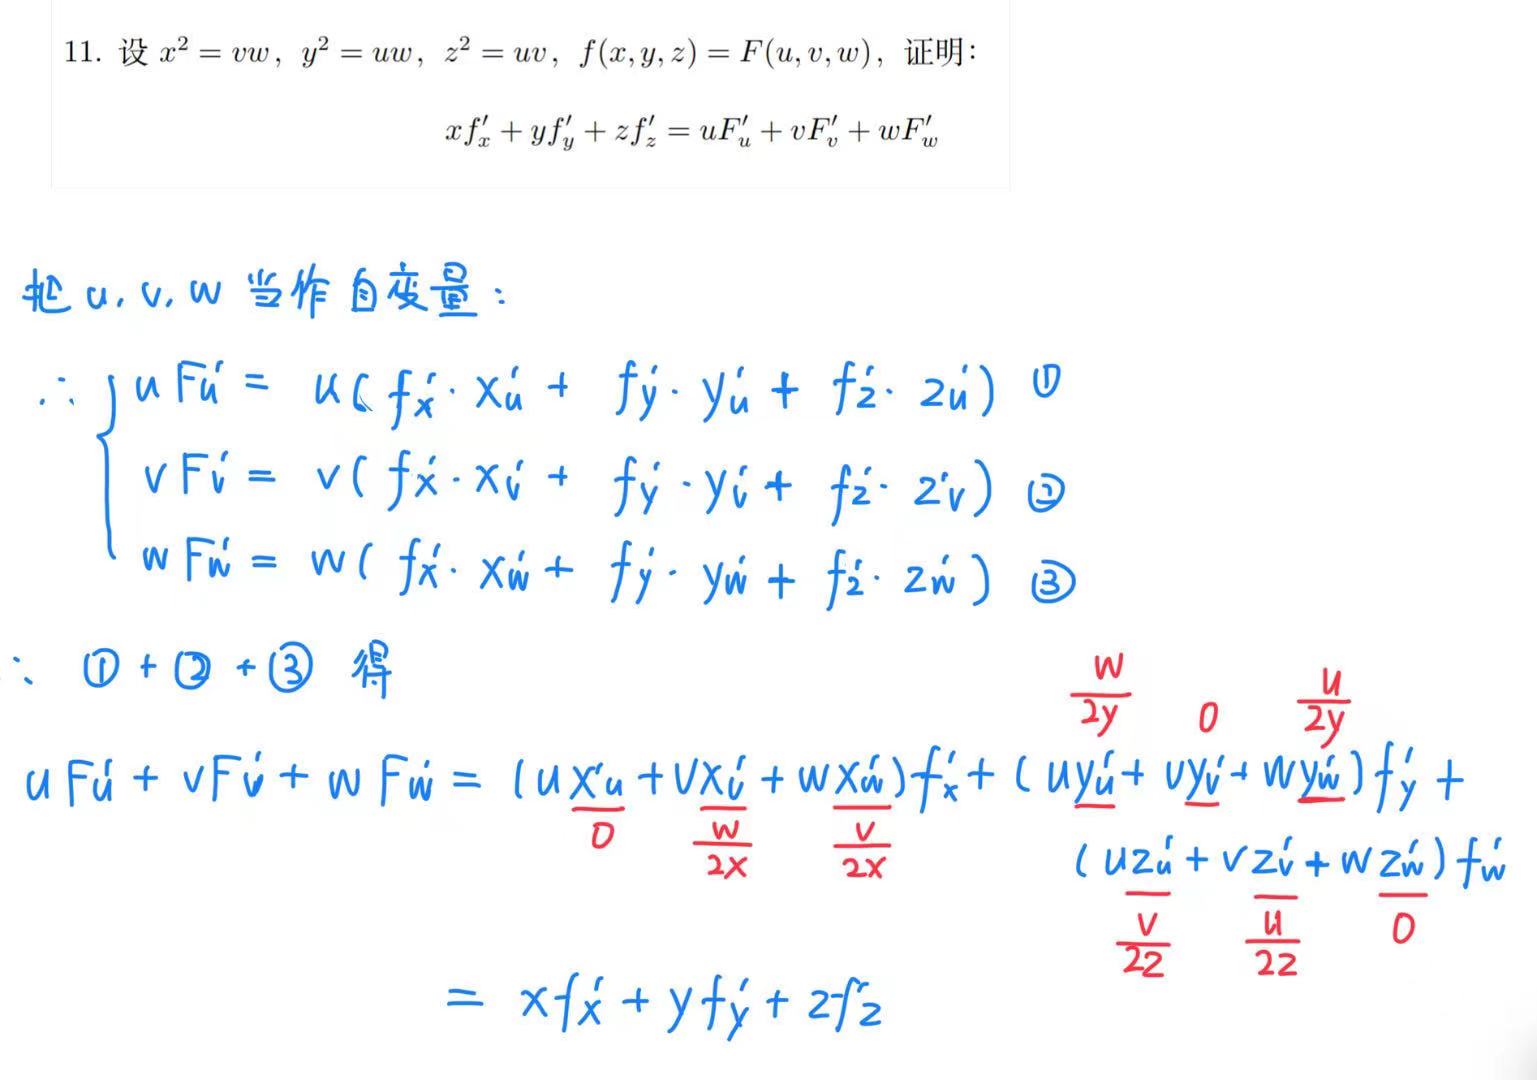 11. 设 x² = vw, y² = uw, z² = uv, f(x, y, z) = F(u, v, w), 证明:
xf′ₓ + yf′_y + zf′_z = uF′_u + vF′_v + wF′_w
把 u, v, w 当作自变量:
∴ { uF′_u = u(f′ₓ · x′_u + f′_y · y′_u + f′_z · z′_u) ①
vF′_v = v(f′ₓ · x′_v + f′_y · y′_v + f′_z · z′_v) ②
wF′_w = w(f′ₓ · x′_w + f′_y · y′_w + f′_z · z′_w) ③
∴ ① + ② + ③ 得
w/2y 0 u/2y
uF′_u + vF′_v + wF′_w = (ux′_u + vx′_v + wx′_w)f′ₓ + (uy′_u + vy′_v + wy′_w)f′_y +
0 w/2x v/2x
(uz′_u + vz′_v + wz′_w)f′_w
v/2z u/2z 0
= xf′ₓ + yf′_y + zf′_z